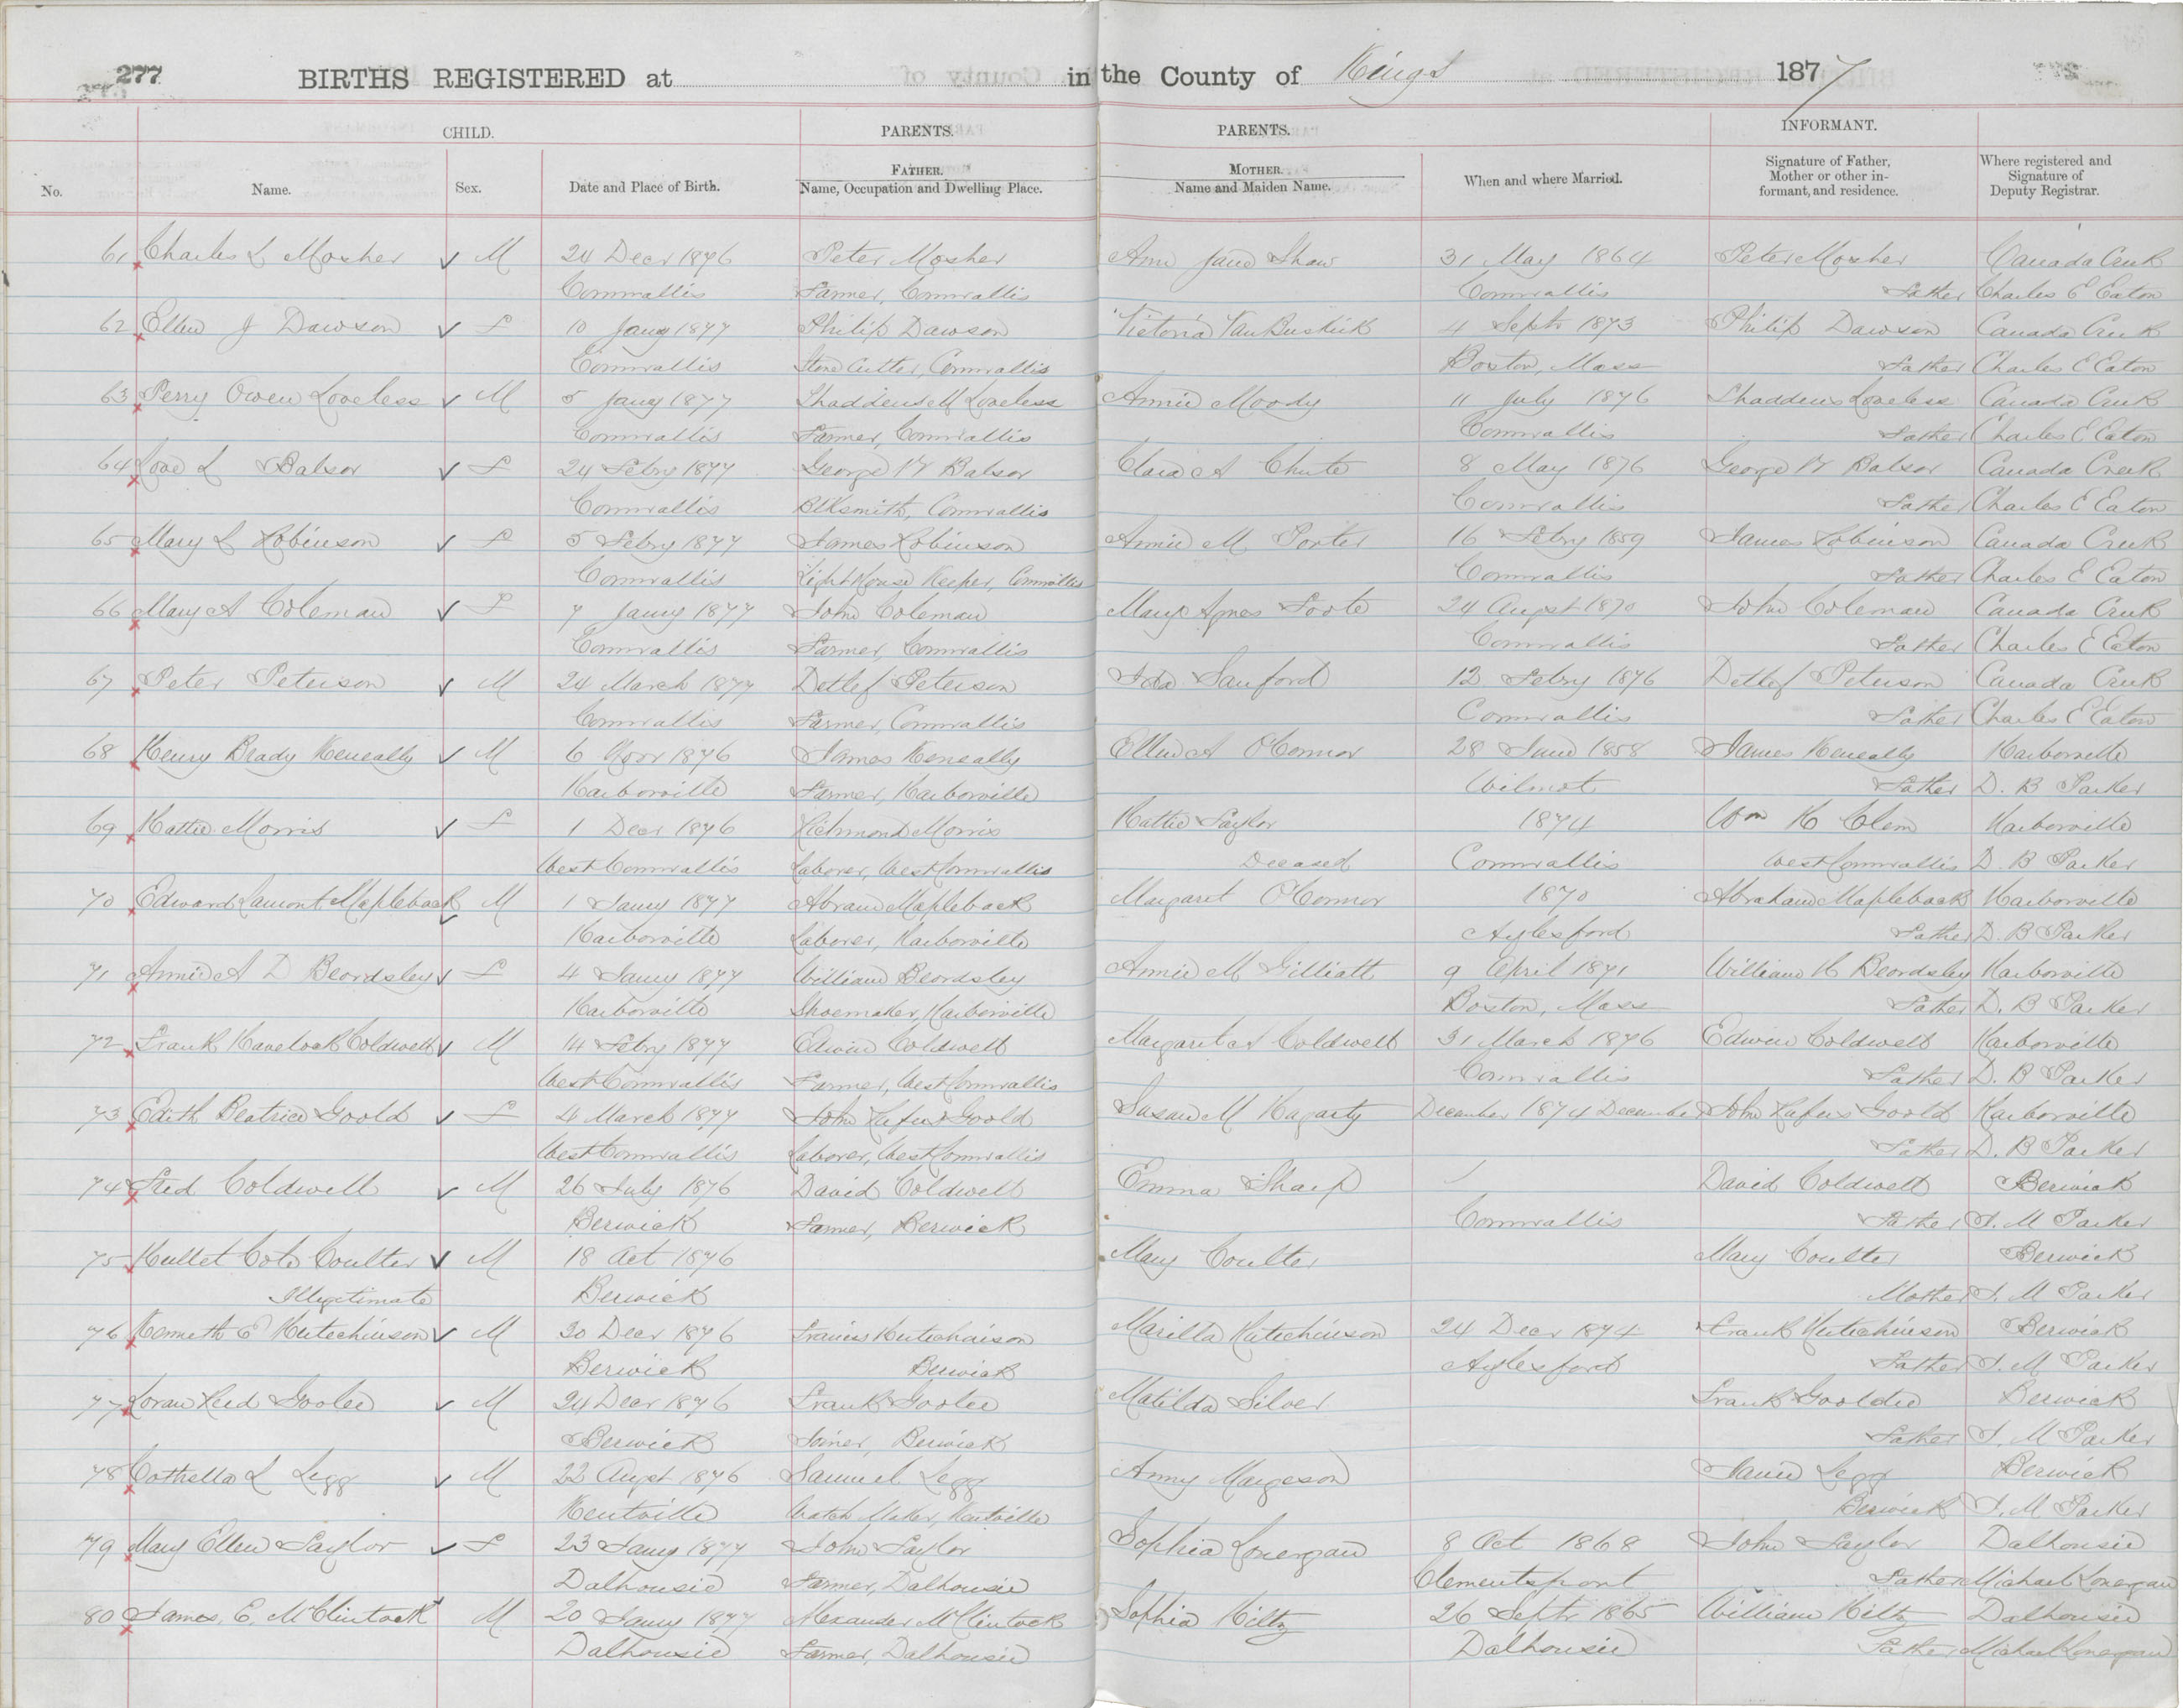 277 BIRTHS REGISTERED at in the County of Kings 1877
CHILD. PARENTS. PARENTS. INFORMANT.
No. Name. Sex. Date and Place of Birth. FATHER. Name, Occupation and Dwelling Place. MOTHER. Name and Maiden Name. When and where Married. Signature of Father, Mother or other informant, and residence. Where registered and Signature of Deputy Registrar.
61 Charles L Mosher M 24 Decr 1876 Peter Mosher Ann Jane Shaw 31 May 1864 Peter Mosher Canada Creek
Cornwallis Farmer, Cornwallis Cornwallis Father Charles E Eaton
62 Ellen J Dawson F 10 Jany 1877 Philip Dawson Victoria VanBuskirk 4 Septr 1873 Philip Dawson Canada Creek
Cornwallis Stone Cutter, Cornwallis Boston, Mass Father Charles E Eaton
63 Perry Owen Loveless M 5 Jany 1877 Thaddeus M Loveless Annie Moody 11 July 1876 Thaddeus Loveless Canada Creek
Cornwallis Farmer, Cornwallis Cornwallis Father Charles E Eaton
64 Love L Balsor F 24 Febry 1877 George W Balsor Clara A Chute 8 May 1876 George W Balsor Canada Creek
Cornwallis Blksmith, Cornwallis Cornwallis Father Charles E Eaton
65 Mary L Robinson F 5 Febry 1877 James Robinson Annie M Porter 16 Febry 1859 James Robinson Canada Creek
Cornwallis Light House Keeper, Cornwallis Cornwallis Father Charles E Eaton
66 Mary A Coleman F 7 Jany 1877 John Coleman Mary Agnes Foote 24 Augst 1870 John Coleman Canada Creek
Cornwallis Farmer, Cornwallis Cornwallis Father Charles E Eaton
67 Peter Peterson M 24 March 1877 Detlef Peterson Ida Sanford 12 Febry 1876 Detlef Peterson Canada Creek
Cornwallis Farmer, Cornwallis Cornwallis Father Charles E Eaton
68 Henry Brady Keneally M 6 Novr 1876 James Keneally Ellen A O'Connor 28 June 1858 James Keneally Harborville
Harborville Farmer, Harborville Wilmot Father D. B Parker
69 Hattie Morris F 1 Decr 1876 Richmond Morris Hattie Taylor 1874 Wm H Clem Harborville
West Cornwallis Laborer, West Cornwallis Deceased Cornwallis West Cornwallis D. B Parker
70 Edward Lamont Mapleback M 1 Jany 1877 Abram Mapleback Margaret O'Connor 1870 Abraham Mapleback Harborville
Harborville Laborer, Harborville Aylesford Father D. B Parker
71 Annie A D Beardsley F 4 Jany 1877 William Beardsley Annie M Gilliatt 9 April 1871 William H Beardsley Harborville
Harborville Shoemaker, Harborville Boston, Mass Father D. B Parker
72 Frank Havelock Coldwell M 14 Febry 1877 Edwin Coldwell Margaret A Coldwell 31 March 1876 Edwin Coldwell Harborville
West Cornwallis Farmer, West Cornwallis Cornwallis Father D. B Parker
73 Edith Beatrice Goold F 4 March 1877 John Rufus Goold Susan M Hagarty December 1874 December John Rufus Goold Harborville
West Cornwallis Laborer, West Cornwallis Father D. B Parker
74 Fred Coldwell M 26 July 1876 David Coldwell Emma Sharp David Coldwell Berwick
Berwick Farmer, Berwick Cornwallis Father S. M Parker
75 Hullet Cole Coulter M 18 Oct 1876 Mary Coulter Mary Coulter Berwick
Illegetimate Berwick Mother S. M Parker
76 Kenneth E Hutechinson M 20 Decr 1876 Francis Hutechinson Marilla Hutechinson 24 Decr 1874 Frank Hutechinson Berwick
Berwick Berwick Aylesford Father S. M Parker
77 Loran Reed Goolee M 24 Decr 1876 Frank Goolee Matilda Silver Frank Gooldie Berwick
Berwick Joiner, Berwick Father S. M Parker
78 Cothella L Legg M 22 Augst 1876 Samuel Legg Anny Margeson Janie Legg Berwick
Kentville Watch Maker, Kentville Berwick S. M Parker
79 Mary Ellen Saylor F 23 Jany 1877 John Saylor Sophia Lonergan 8 Oct 1868 John Saylor Dalhousie
Dalhousie Farmer, Dalhousie Clementsport Father Michael Lonergan
80 James. E. McClintock M 20 Jany 1877 Alexander McClintock Sophia Hiltz 26 Septr 1865 William Hiltz Dalhousie
Dalhousie Farmer, Dalhousie Dalhousie Father Michael Lonergan